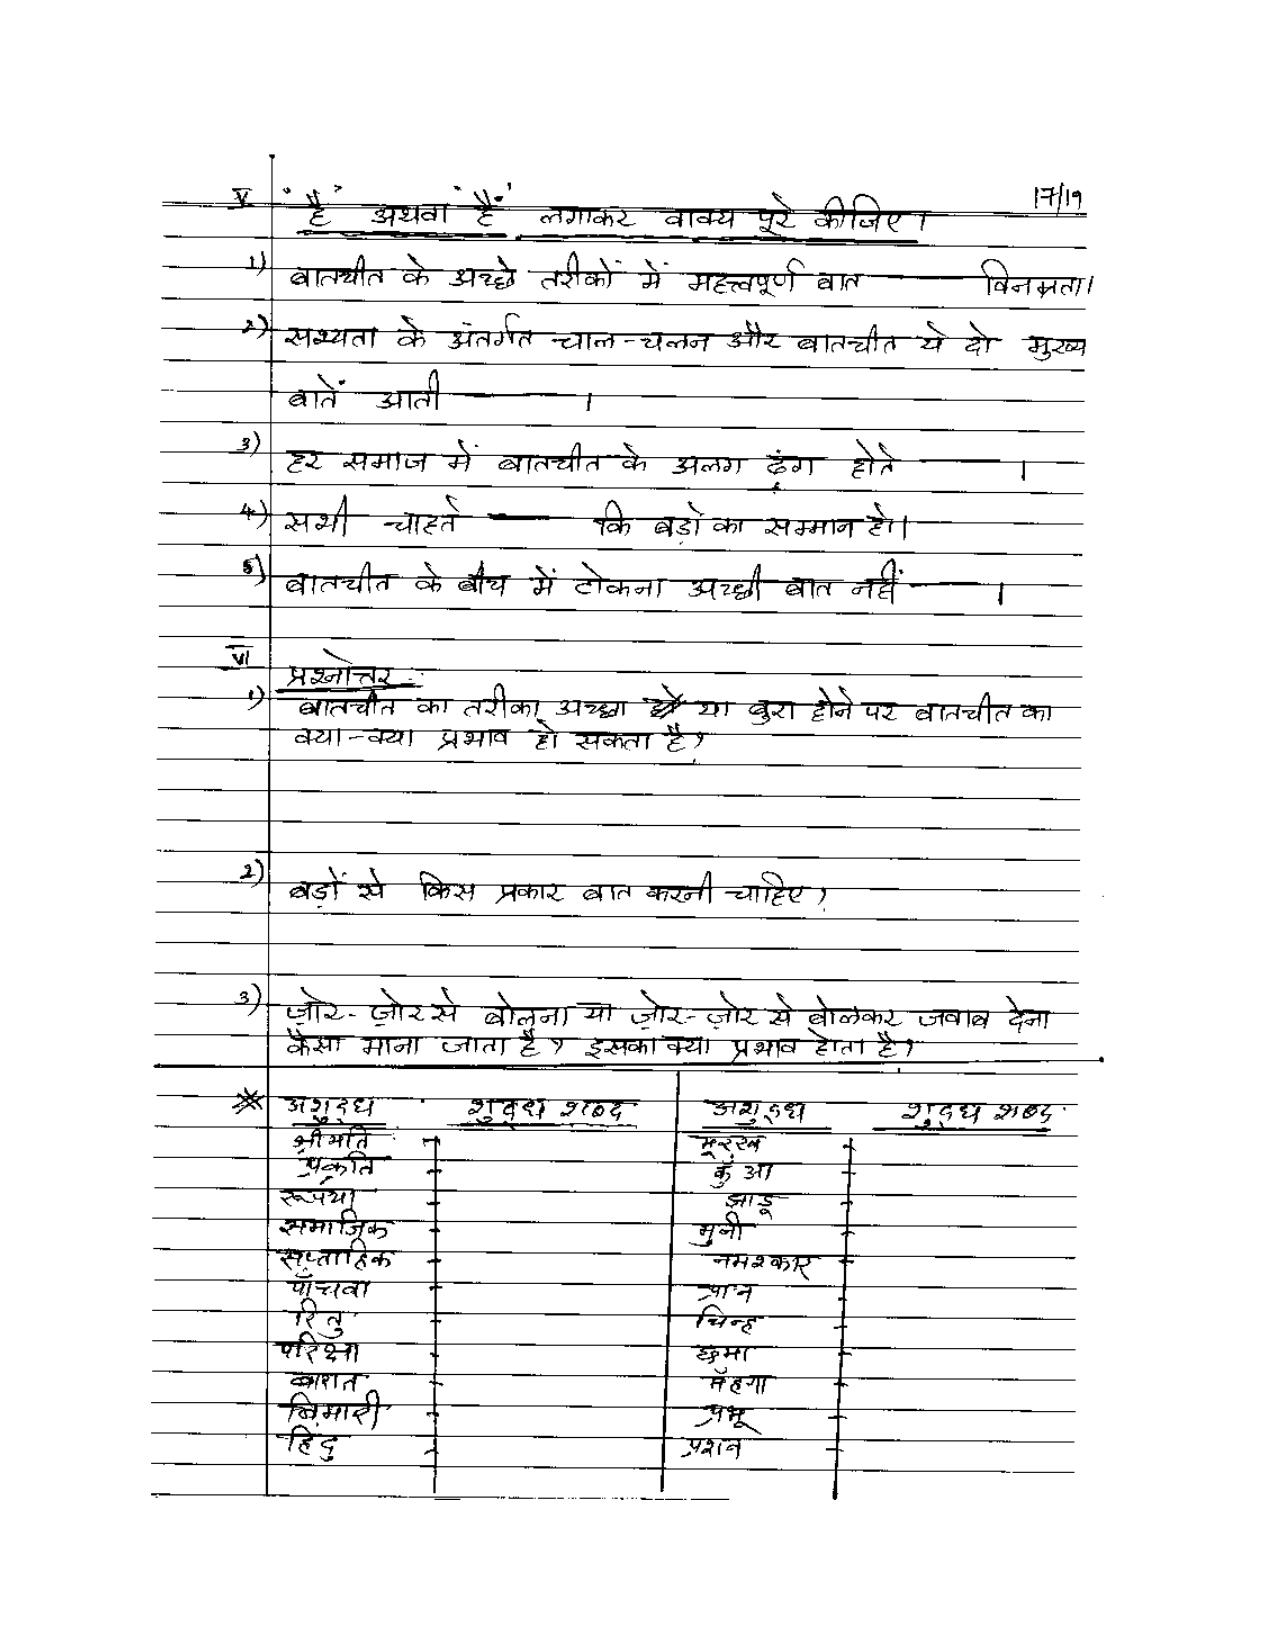 17/19
V 'है' अथवा 'हैं' लगाकर वाक्य पूरे कीजिए।
1) बातचीत के अच्छे तरीकों में महत्त्वपूर्ण बात ——— विनम्रता।
2) सभ्यता के अंतर्गत चाल-चलन और बातचीत ये दो मुख्य
बातें आती ———।
3) हर समाज में बातचीत के अलग ढंग होते ———।
4) सभी चाहते ——— कि बड़ों का सम्मान हो।
5) बातचीत के बीच में टोकना अच्छी बात नहीं ———।
VI प्रश्नोत्तर :
1) बातचीत का तरीका अच्छा या बुरा होने पर बातचीत का
क्या-क्या प्रभाव हो सकता है?
2) बड़ों से किस प्रकार बात करनी चाहिए?
3) ज़ोर-ज़ोर से बोलना या ज़ोर-ज़ोर से बोलकर जवाब देना
कैसा माना जाता है? इसका क्या प्रभाव होता है?
* अशुद्ध शुद्ध शब्द अशुद्ध शुद्ध शब्द
श्रीमति मूरख
प्रकृति कुँआ
रूपया झाडू
समाजिक मुनी
सप्ताहिक नमश्कार
पाँचवा प्रान
रितु चिन्ह
परिक्षा छमा
बारात मँहगा
बिमारी प्रभू
हिंदु प्रशन